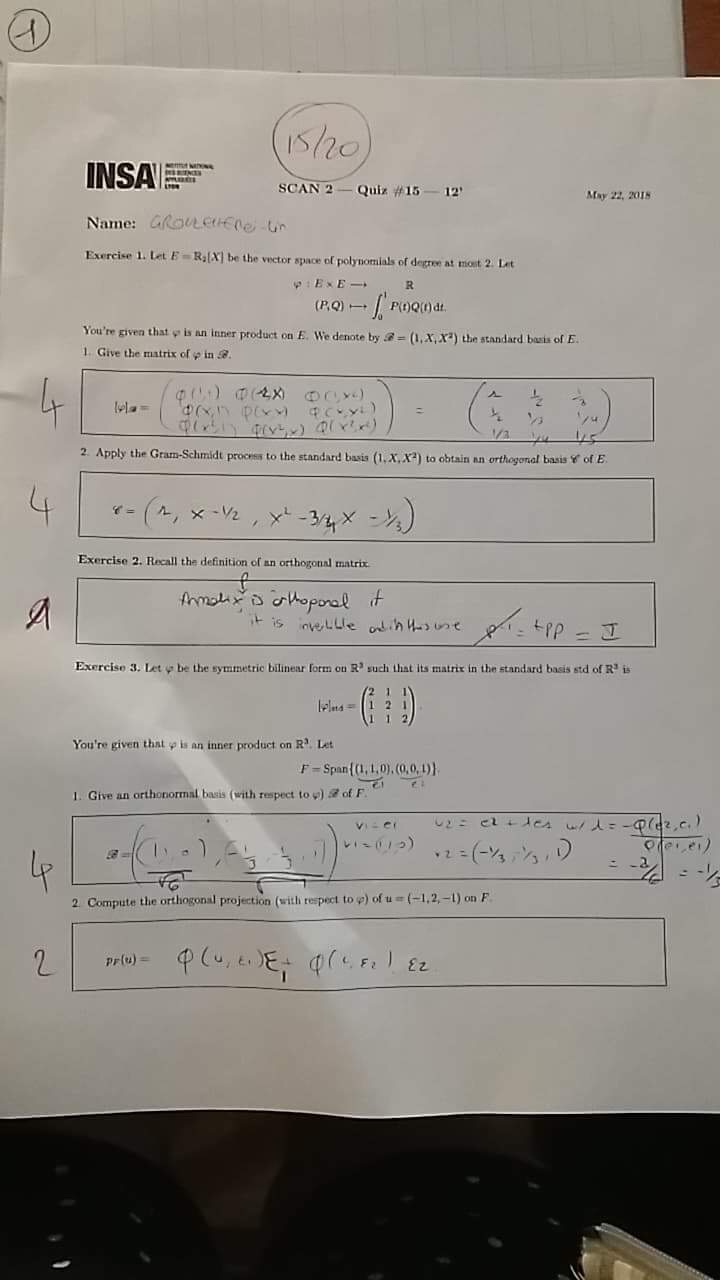 1
15/20
INSA INSTITUT NATIONAL DES SCIENCES APPLIQUÉES LYON
SCAN 2 — Quiz #15 — 12'
May 22, 2018
Name:
Exercise 1. Let E = ℝ₂[X] be the vector space of polynomials of degree at most 2. Let
φ : E × E ⟶ ℝ
(P,Q) ⟼ ∫₀¹ P(t)Q(t) dt.
You're given that φ is an inner product on E. We denote by ℬ = (1, X, X²) the standard basis of E.
1. Give the matrix of φ in ℬ.
4
[φ]ℬ =
φ(1,1) φ(1,X) φ(1,X²)
φ(X,1) φ(X,X) φ(X,X²)
φ(X²,1) φ(X²,X) φ(X²,X²)
=
1 1/2 1/3
1/2 1/3 1/4
1/3 1/4 1/5
2. Apply the Gram-Schmidt process to the standard basis (1, X, X²) to obtain an orthogonal basis 𝒞 of E.
4
𝒞 = (1, X - 1/2, X² - 3/4 X - 1/3)
Exercise 2. Recall the definition of an orthogonal matrix.
A matrix P is orthogonal if
it is invertible and in this case P⁻¹ = tPP = I
Exercise 3. Let φ be the symmetric bilinear form on ℝ³ such that its matrix in the standard basis std of ℝ³ is
[φ]std =
2 1 1
1 2 1
1 1 2
You're given that φ is an inner product on ℝ³. Let
F = Span{(1,1,0),(0,0,1)}.
e1 e2
1. Give an orthonormal basis (with respect to φ) ℬ of F.
4
v1 = e1 v2 = e2 + λe1 w/ λ = -φ(e2,e1)
φ(e1,e1)
ℬ = ((1,1,0) , (-1/3, -1/3, 1)) v1 = (1,1,0) v2 = (-1/3, -1/3, 1) = -2/6 = -1/3
√6
2. Compute the orthogonal projection (with respect to φ) of u = (−1, 2, −1) on F.
2
pF(u) = φ(u, ε1)ε1 + φ(u, ε2) ε2